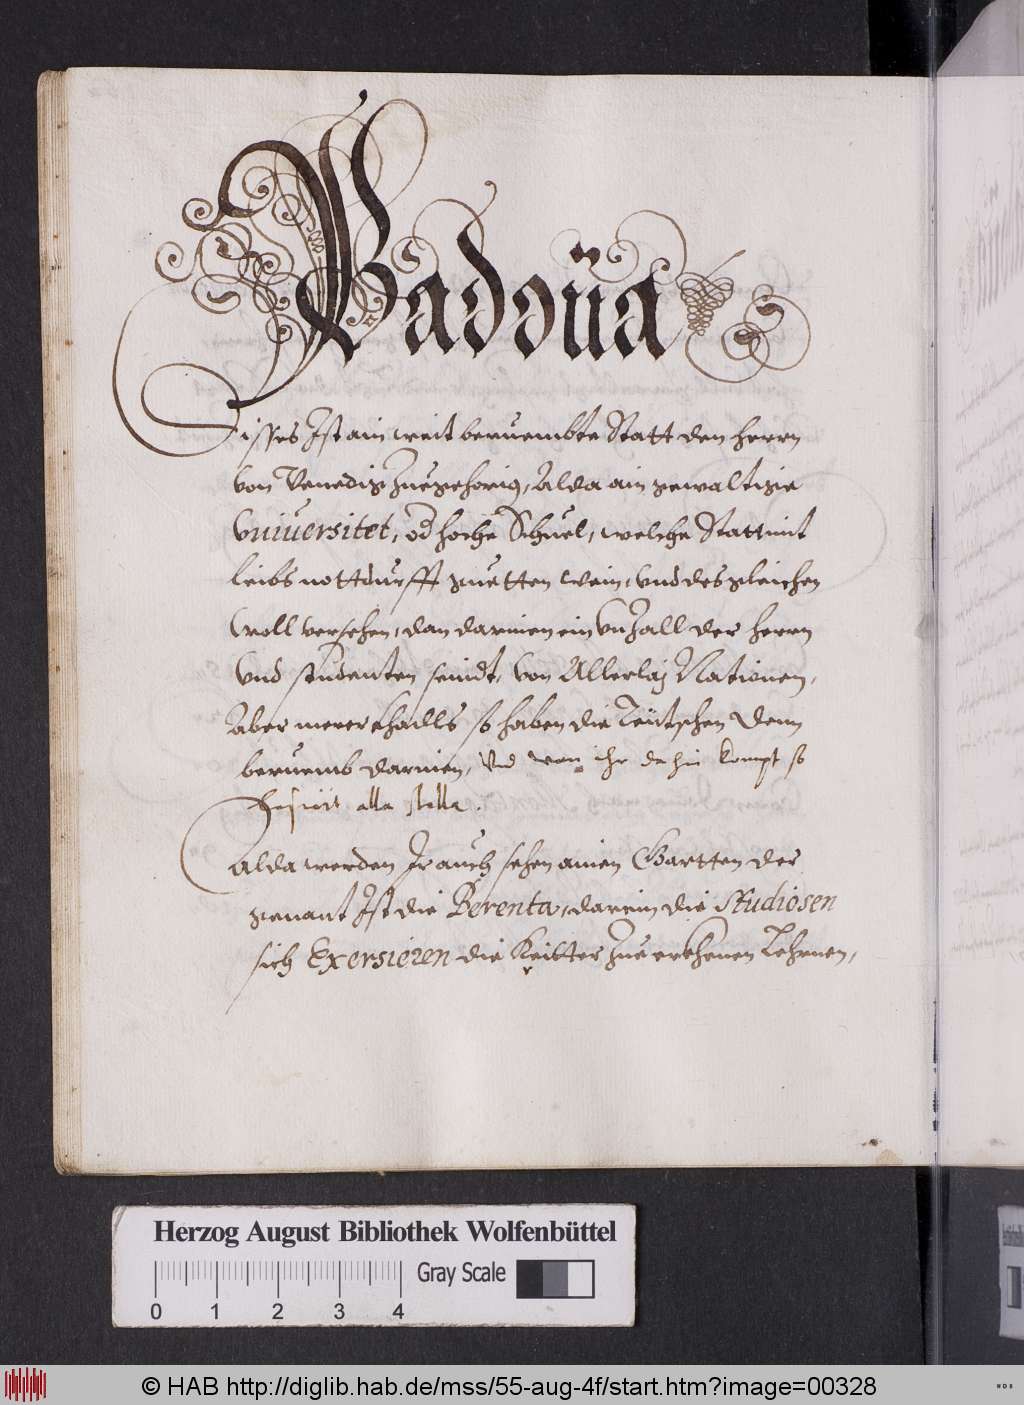 Padoua
Disses Ist ain weit beruembte Statt den herrn
von Venedig zuegehorig, Alda ain gewaltigie
Vniuersitet, od hoche Schuel, welche Statt mit
leibs nottdurfft guetten wein, vnd desgleichen
woll versehen, dan darinen ein vnzall der herrn
vnd studenten seindt, von Allerlaj Nationen,
Aber merer thaills so haben die Teütschen Denn
beruemb darinen, Vnd wan ihr da hin kompt so
alla stella.
Alda werden Ir auch sehen ainen Gartten der
genant Ist die Berenta, darein die Studiosen
sich Exersieren die Kreitter zue erkhenen Lehrnen,
Herzog August Bibliothek Wolfenbüttel
Gray Scale
0 1 2 3 4
© HAB http://diglib.hab.de/mss/55-aug-4f/start.htm?image=00328